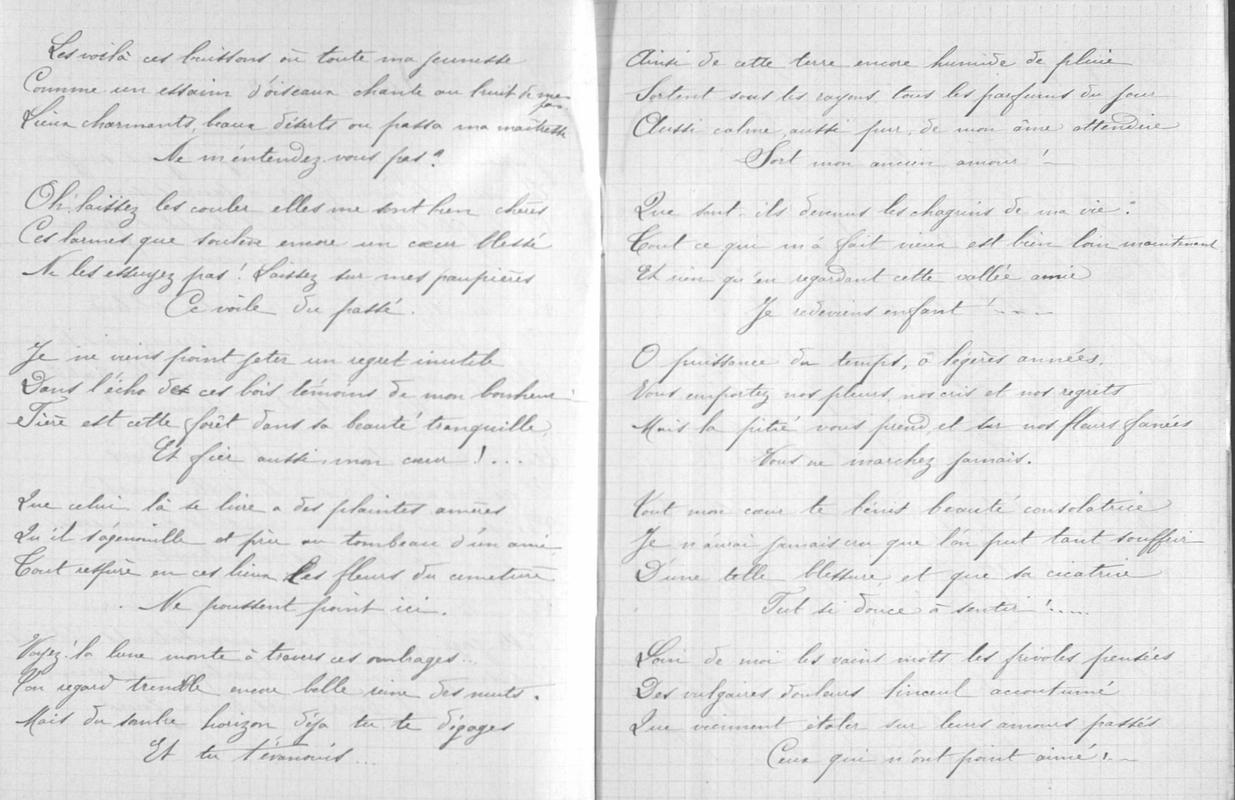 Les voilà ces buissons où toute ma jeunesse
Comme un essaim d'oiseaux chante au bruit de mes pas
Lieux charmants, beaux déserts ou passa ma maîtresse
Ne m'entendez vous pas ?
Oh! laissez les couler elles me sont bien chères
Ces larmes que soulève encore un cœur blessé
Ne les essuyez pas ! Laissez sur mes paupières
Ce voile du passé.
Je ne viens point jeter un regret inutile
Dans l'écho de ces bois témoins de mon bonheur
Fière est cette forêt dans sa beauté tranquille,
Et fier aussi mon cœur !...
Que celui là se livre a des plaintes amères
Qu'il s'agenouille et prie au tombeau d'un ami
Tout respire en ces lieux les fleurs du cimetière
Ne poussent point ici.
Voyez! la lune monte à travers ces ombrages...
Ton regard tremble encore belle reine des nuits.
Mais du sombre horizon déja tu te dégages
Et tu t'évanouis...
Ainsi de cette terre encore humide de pluie
Sortent sous les rayons, tous les parfums du jour
Aussi calme, aussi pur, de mon âme attendrie
Sort mon ancien amour !
Que sont-ils devenus les chagrins de ma vie ?
Tout ce qui m'a fait vieux est bien loin maintenant
Et rien qu'en regardant cette vallée amie
Je redeviens enfant !...
O puissance du temps, ô legères années,
Vous emportez nos pleurs, nos cris et nos regrets
Mais la pitié vous prend, et sur nos fleurs fanées
Vous ne marchez jamais.
Tout mon cœur te bénit beauté consolatrice
Je n'aurai jamais cru que l'on put tant souffrir
D'une telle blessure, et que sa cicatrice
Fut si douce à sentir !....
Loin de moi les vains mots les frivoles pensées
Des vulgaires douleurs linceul accoutumé
Que viennent étaler sur leurs amours passés
Ceux qui n'ont point aimé !..